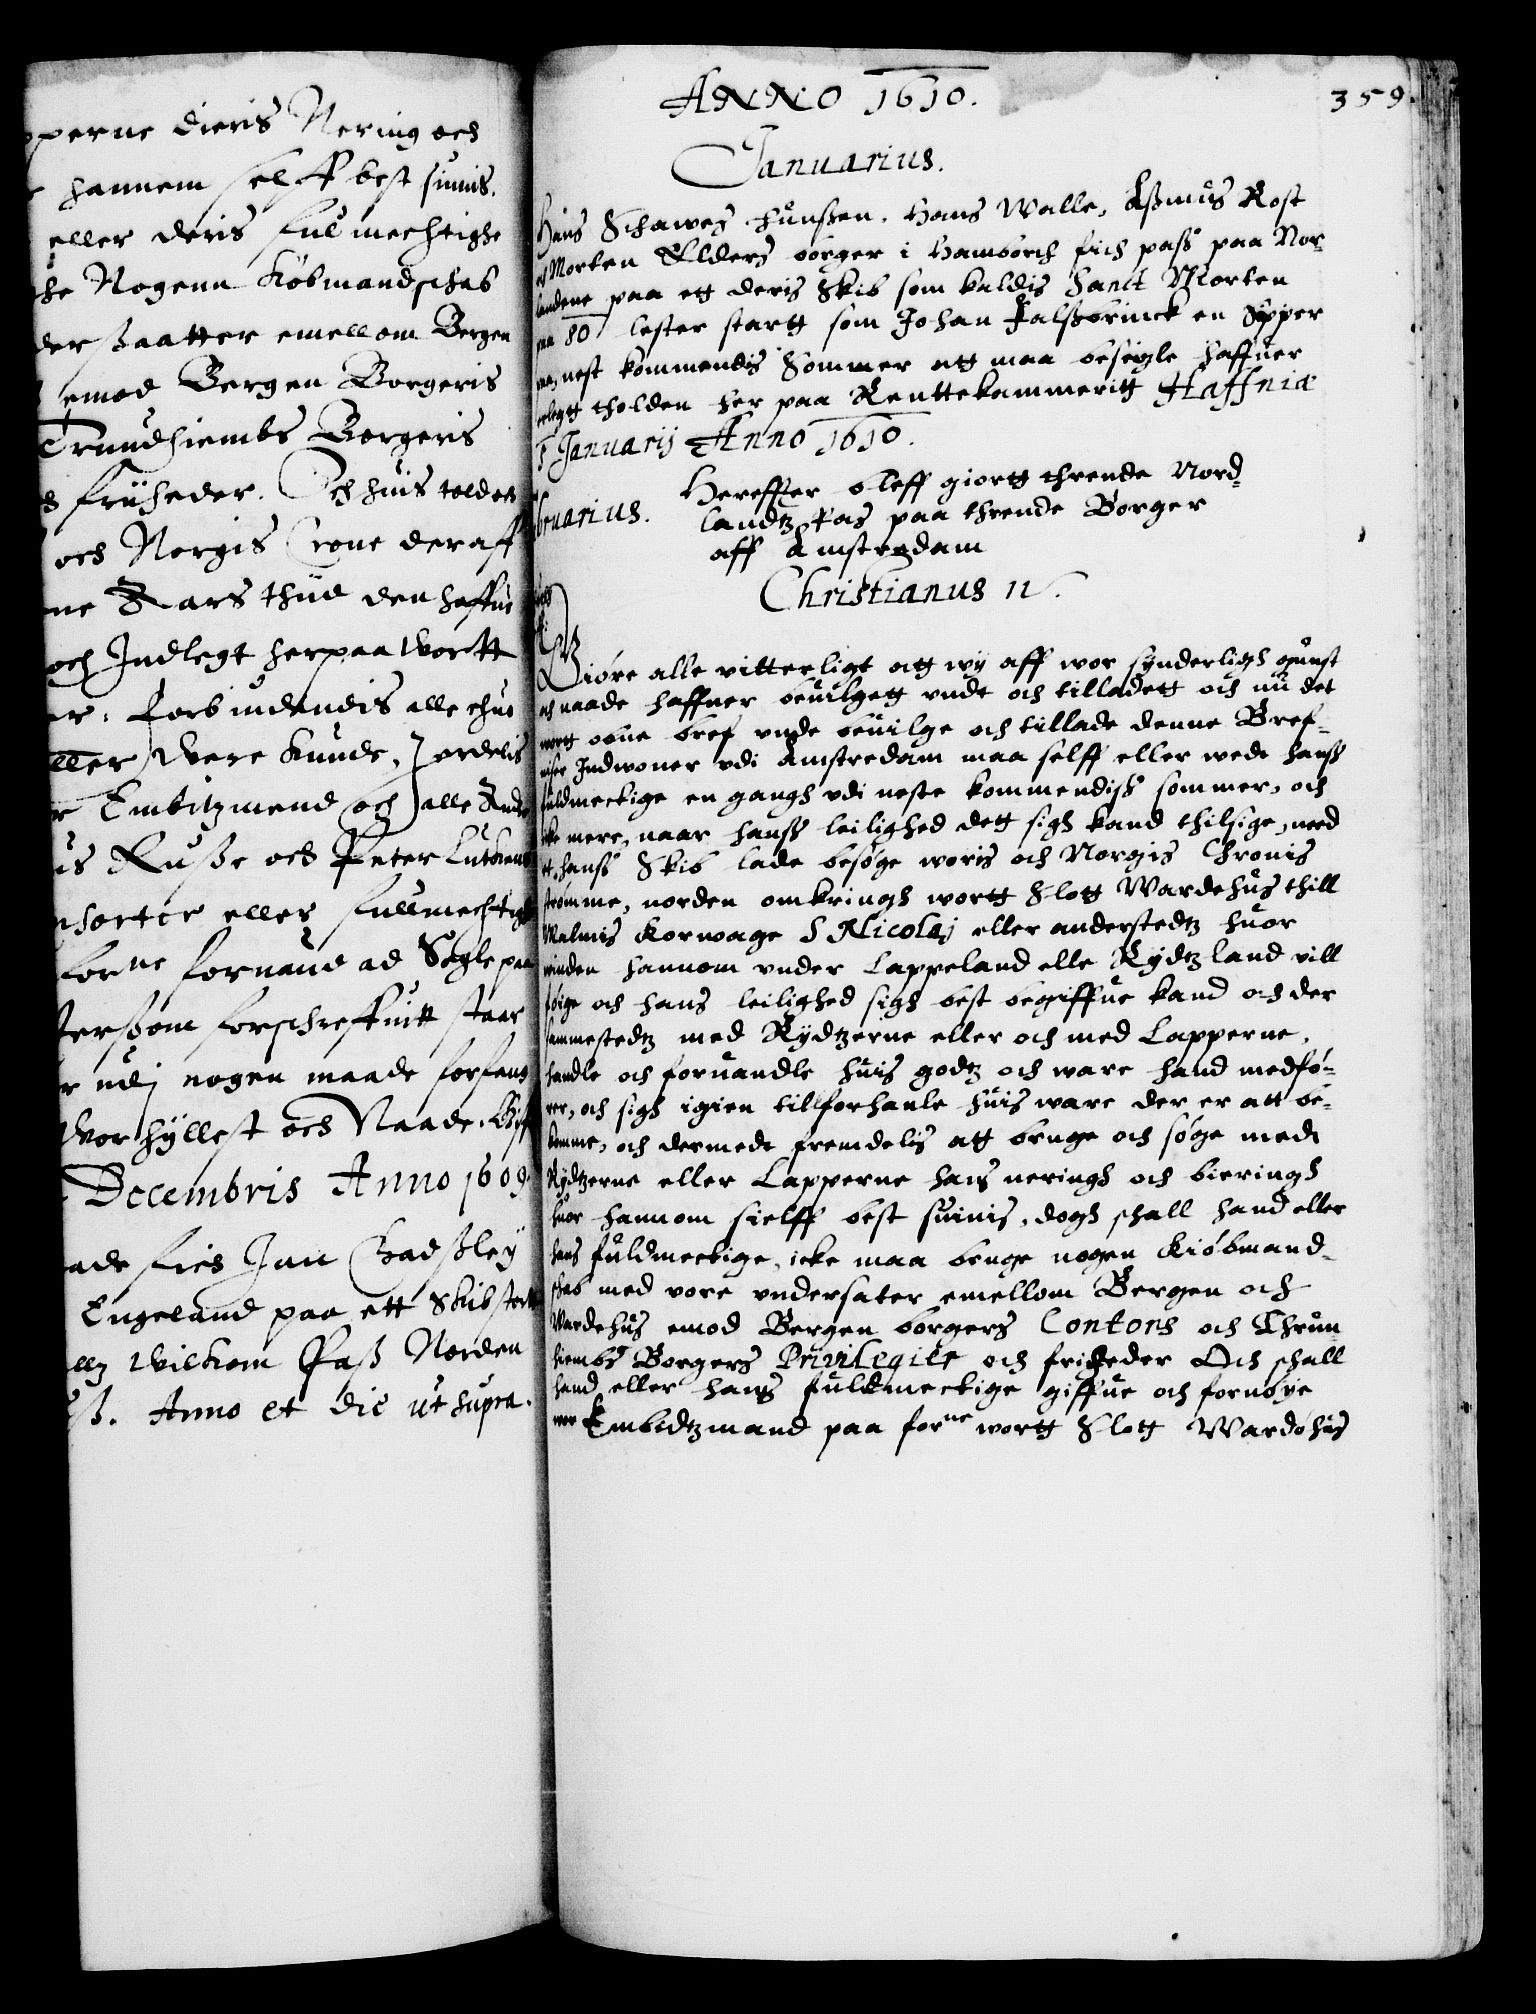 perne dieris Nering och
hannem self best siunis.
eller deris fulmechtighe
he Nogenn Kóbmandschab
derßaatter emellom Bergen
emod Bergen Borgeris
Trundhiembs Borgeris
friiheder. Och huis tolden
och Norgis Crone deraff
ne Aars thiid den haffue
och Indlegt her paa wortt
er. Forbiudendis alle ehuo
ller were kunde, ordelis
r Embitzmend och alle Andre
us Ruße och Peter Lutkens
nsorter eller fullmechtige
forne fornaue ad Segle paa
derßom forschreffuitt staar
r udj nogen maade forfang
wor hyllest och Naade. Giff
Decembris Anno 1609.
ade fich Jan
Engeland paa ett Skib stortt
Wilkom Paß Norden
ß. Anno et die ut supra.
ANNO 1610.
359.
Januarius.
Hans Schawes hunßen. Hans Walle, Aßmus Rost
Morten Elders borger i Hamborch fich pass paa Nor-
landene paa ett deris Skib som kaldis Sanct Morten
paa 80 lester startt som Johan Falßbrinck en Skipper
paa, nest kommendis Sommer att maa beseigle haffuer
erlegtt tholden her paa Renttekammeritt Haffniæ
Januarij Anno 1610.
bruarius.
Hereffter bleff giortt thrende Nord-
landtz Pas paa thrende Borger
aff Amstredam
Christianus 4.
Giøre alle vitterligt att wij aff wor synderligh gunst
och naade haffuer beuilgett vndt och tilladett och nu det
mett dette bref vnde beuilge och tillade denne Bref-
uiser Indwoner vdi Amstredam maa selff eller wede hans
fuldmectige en gangh vdi neste kommendish sommer, och
icke mere, naar hanss leilighed dett sigh kand thilsige, med
ett hanss Skib lade besøge woris och Norgis Chronis
strømme, norden omkringh wortt Slott Wardehus thill
Malmis Korwage S Nicolaj eller anderstedtz huor
winden hannom vnder Lappeland elle Rydtzland vill
føige och hans leilighed sigh best begiffue kand och der
sammestedtz med Rydtzerne eller och med Lapperne,
handle och foruandle huis godtz och ware hand medfó-
rer, och sigh igien tillforhanle huis ware der er att be-
komme, och dermede fremdelis att bruge och søge medt
Rydtzerne eller Lapperne hans neringh och bieringh
huor hannom sielff best siunis, dogh schall hand eller
hans fuldmectige, icke maa bruge nogen Kióbmand-
schab med vore vndersater emellom Bergen och
Wardehus emod Bergen borgers Contors och Thrun-
hiembs Borgers Privilegier och friheder Och schall
hand eller hans fuldmectige giffue och fornøye
wor Embidtzmand paa forne wortt Slott Wardøhus